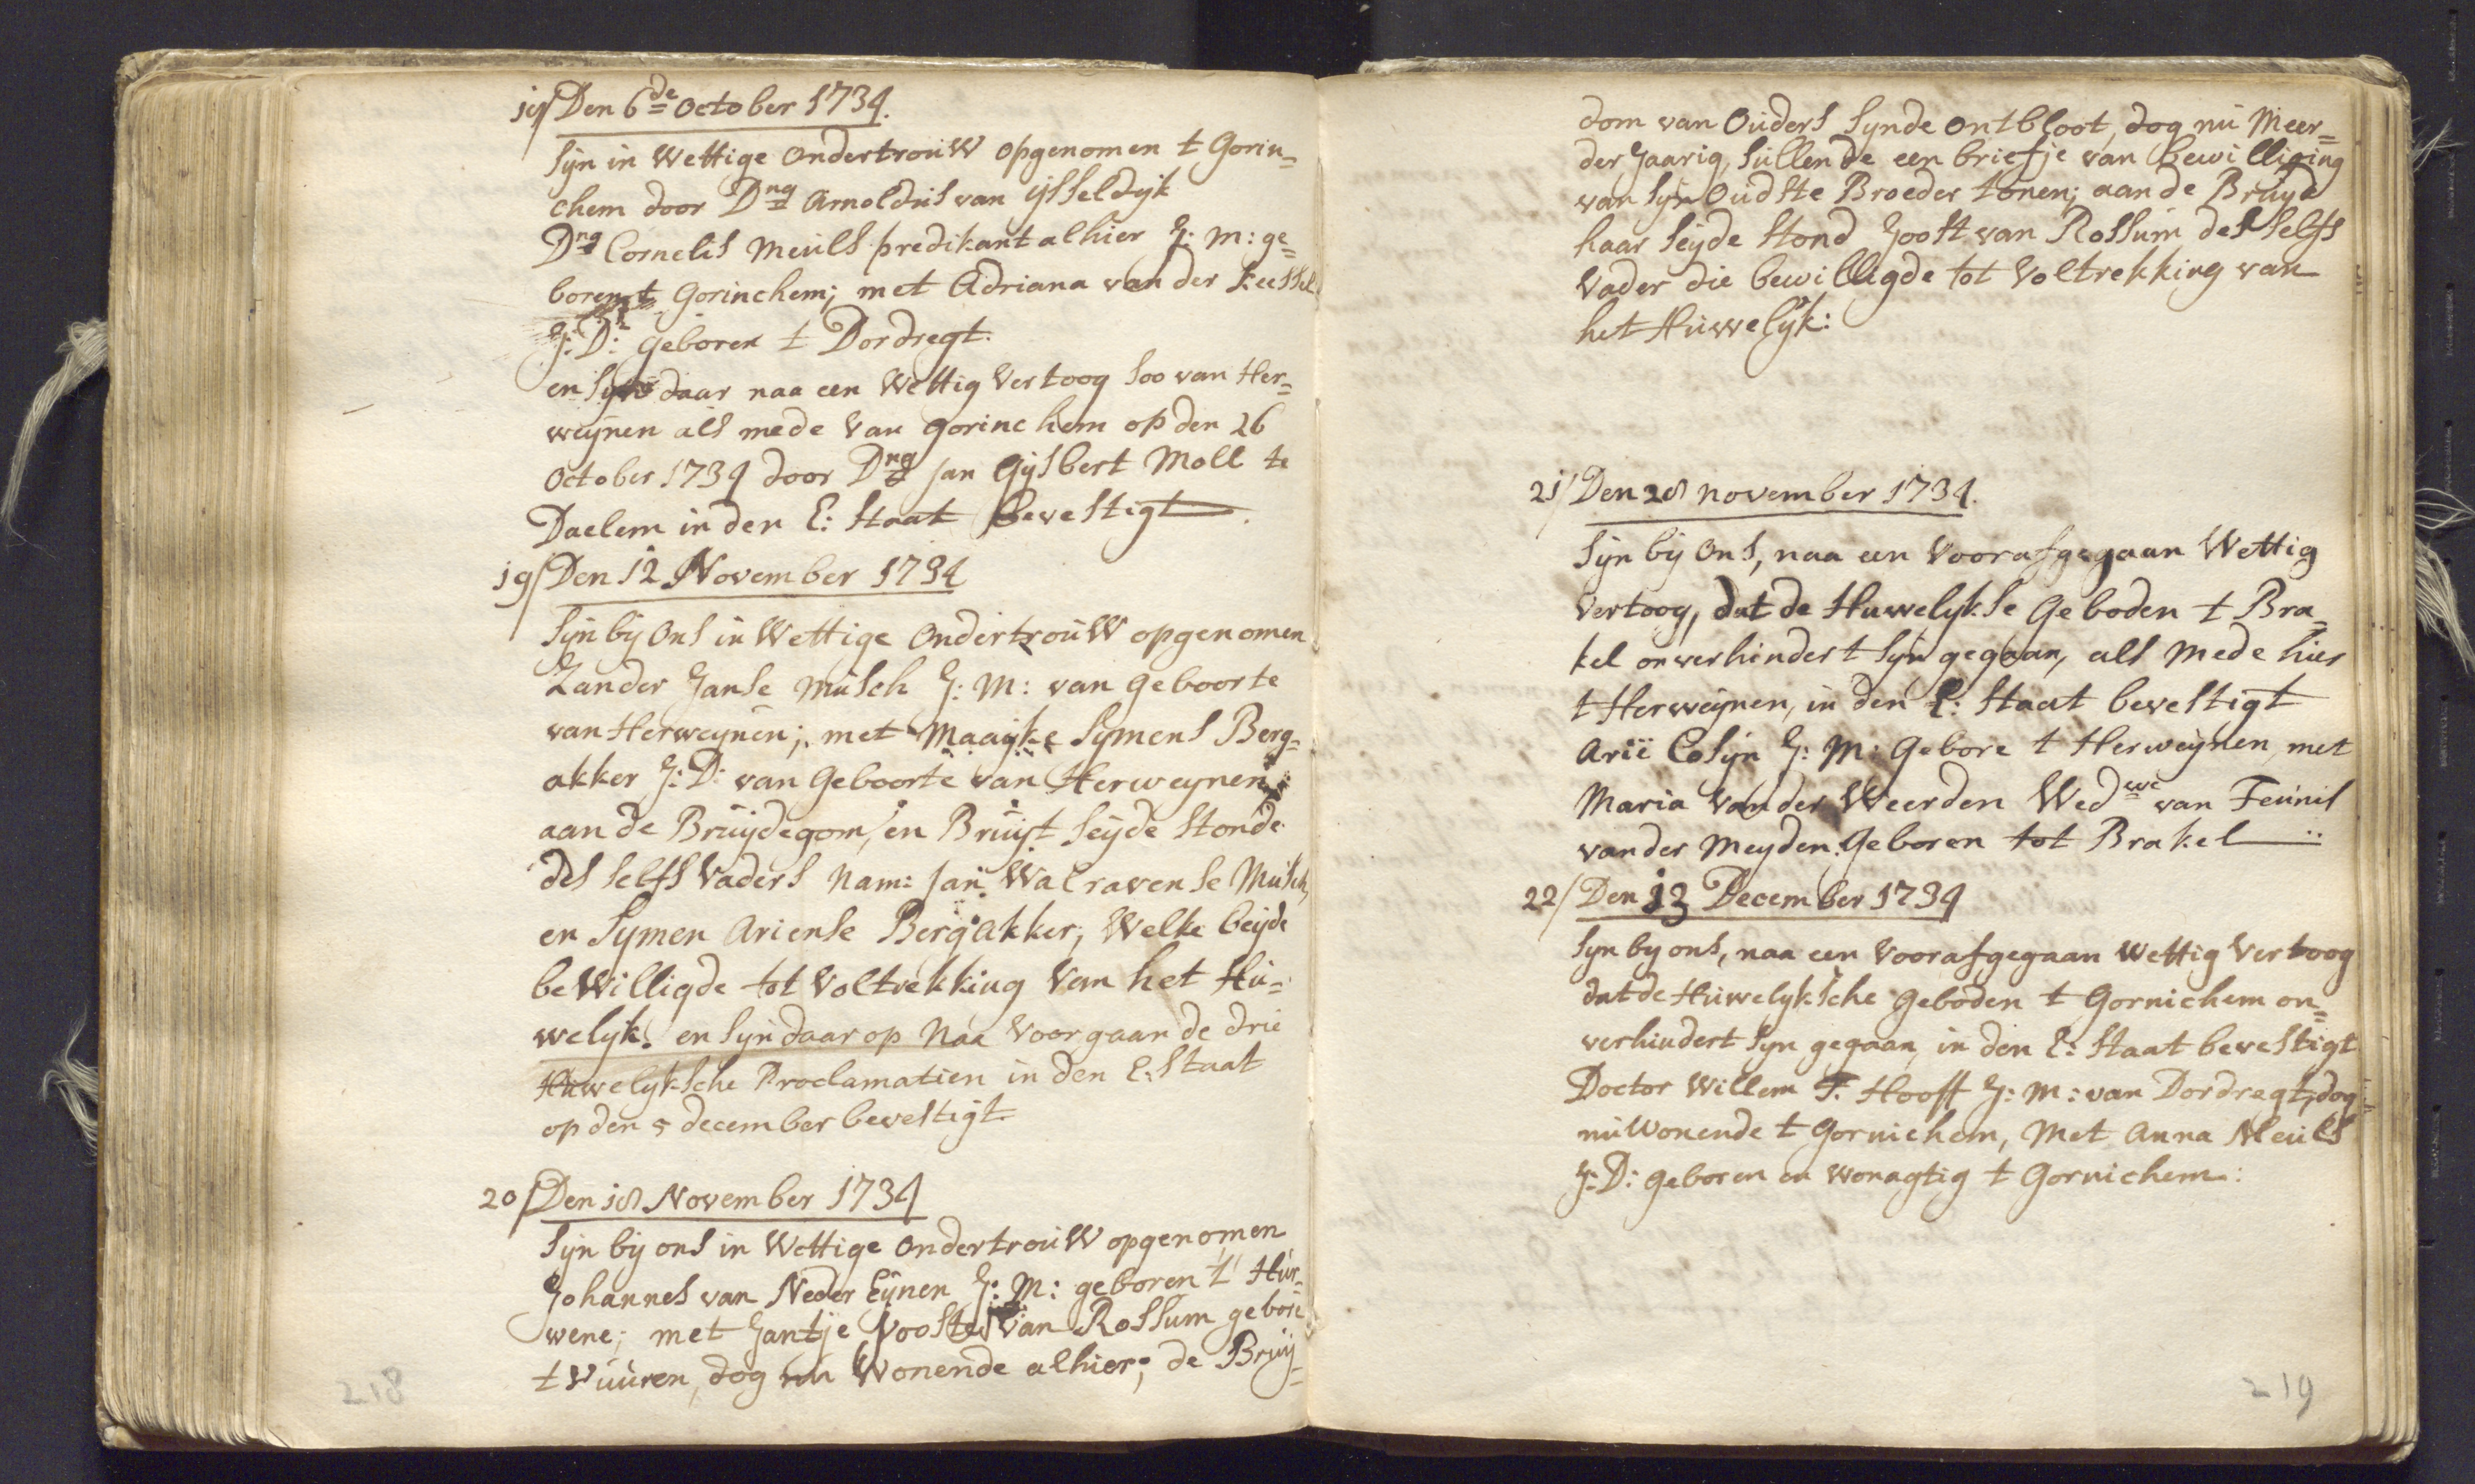 18/ Den 6de October 1734.
Syn in Wettige Ondertrouw opgenomen t Gorin=
chem door Dng Arnoldus van ysseldyk
Dng Cornelis Meuls predikant alhier J: M: ge=
boren t Gorinchem; met Adriana van der Keessel
J: D: geboren t Dordregt.
en Syn daar naa een Wettig Vertoog Soo van Her=
weynen als mede van Gorinchem op den 26
October 1734 door Dng Jan Gysbert Moll te
Daelem in den E: Staat bevestigt.
19/ Den 12 November 1734
Syn by Ons in Wettige Ondertrouw opgenomen
Zander Janse Musch J: M: van Geboorte
van Herweynen; met Maayke Symens Berg=
akker J: D: van Geboorte van Herweynen;
aan de Bruydegom, en Bruyt Seyde Stonde
des Selfs Vaders Nam: Jan Walravense Musch,
en Symen Ariense Bergakker; Welke beyde
beWilligde tot Voltrekking Van het Hu=
welyk. en Syn daar op Naa Voorgaande drie
Huwelyksche Proclamatien in den E: Staat
op den 5 december bevestigt
20/ Den 18 November 1734
Syn by ons in Wettige Ondertrouw opgenomen
Johannes van Neder Eynen J: M: geboren t Hur=
wene; met Jantje Joosten van Rossum gebore
t Vuuren, dog nu Wonende alhier; de Bruy=
218
dom van Ouders Synde Ontbloot, dog nu Meer=
der Jaarig, Sullende een briefje van bewilliging
van Syn Oudste Broeder tonen; aan de Bruyd
haar Seyde Stond Joost van Rossum des Selfs
Vader die bewilligde tot Voltrekking van
het Huwelyk:
21/ Den 28 november 1734.
Syn by Ons, naa een Voorafgegaan Wettig
Vertoog, dat de Huwelykse Geboden t Bra=
kel onverhindert Syn gegaan, als Mede hier
t Herweynen, in den E: Staat bevestigt
Arii Cosyn J: M: Gebore t Herweynen, met
Maria van der Weerden Wedwe van Teunis
van der Meyden. Geboren tot Brakel
22/ Den 13 December 1734
Syn by ons, naa een Voorafgegaan Wettig Vertoog
dat de Huwelyksche Geboden t Gornichem on=
verhindert Syn gegaan, in den E: Staat bevestigt
Doctor Willem T. Hooft J: M: van Dordregt, dog
nu Wonende t Gornichem, Met Anna Meuls
J: D: geboren en Woragtig t Gornichem:
219